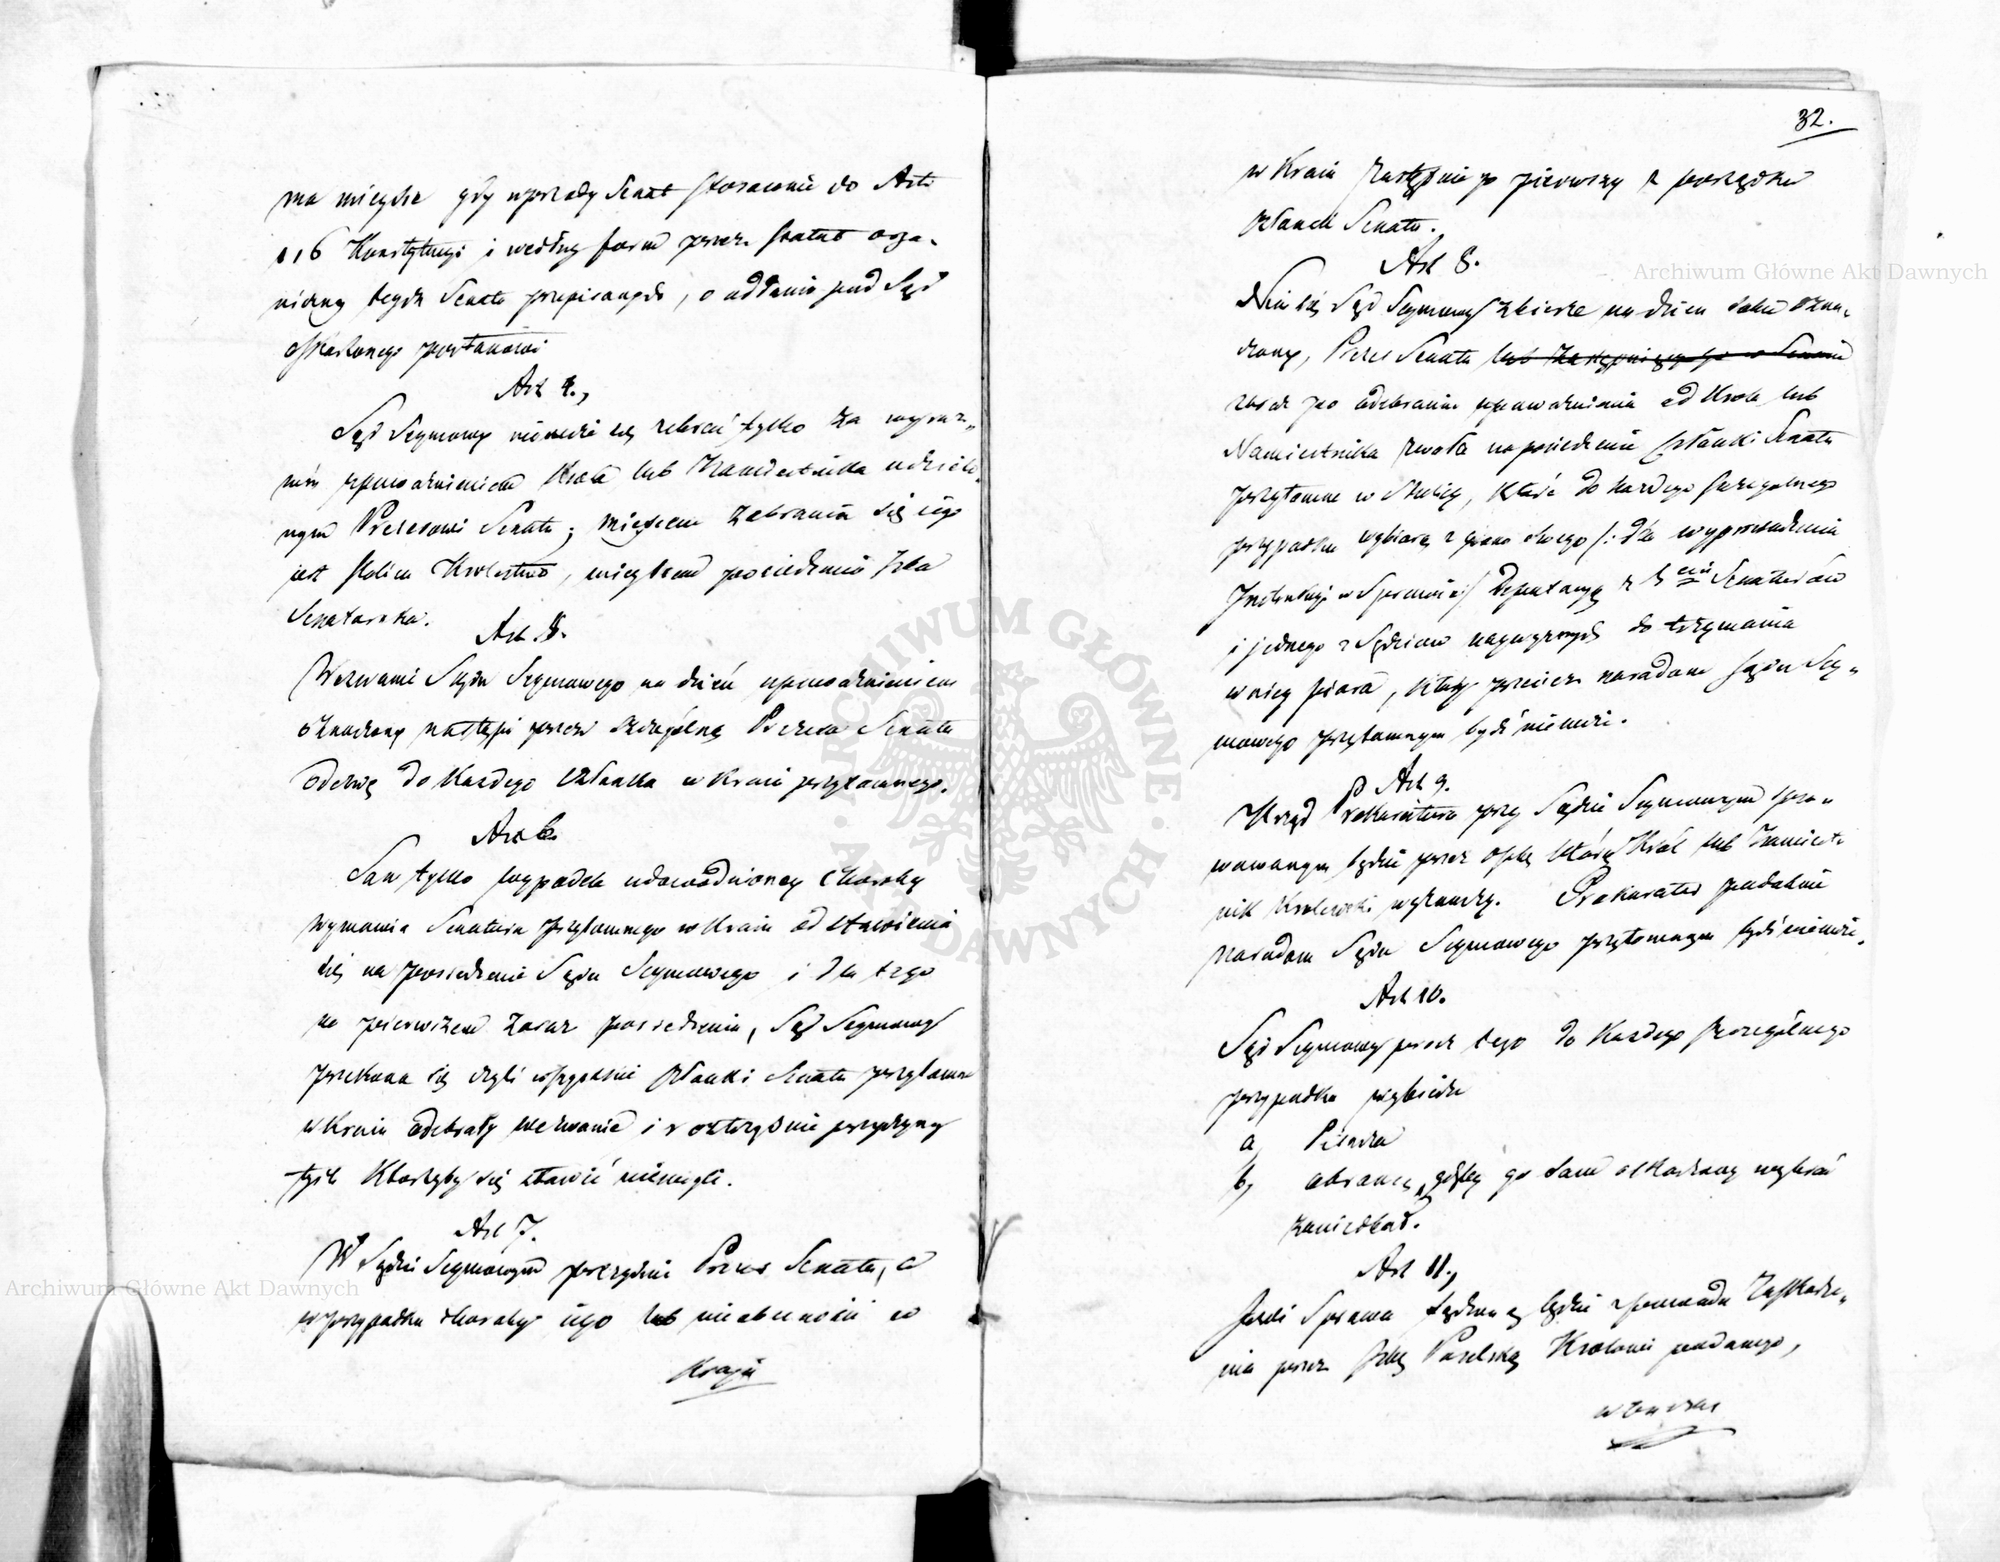 ma mieysce gdy uprzedy Senat stosownie do Art:
116 Konstytucyi i według form przez Statut orga-
niczny tegoż Senatu przepisanych, o oddanie pod Sąd
oskarżonego postanowi
Art 4.,
Sąd Seymowy niemoże się zebrać tylko za wyraz-
nem upoważnieniem Króla lub Namiestnika udzielo-
nym Prezesowi Senatu; mieyscem zebrania się iego
jest stolica Królestwa, mieyscem posiedzenia Izba
Senatorska.
Art 5.
Wezwanie Sądu Seymowego na dzień upoważnieniem
oznaczony nastąpi przez szczególną Prezesa Senatu
odezwę do każdego członka w Kraiu przytomnego.
Art 6.
Sam tylko przypadek udowodnioney choroby
wymawia Senatora przytomnego w Kraiu od stawienia
się na posiedzenie Sądu Seymowego i dla tego
na pierwszem zaraz posiedzeniu, Sąd Seymowy
przekona się czyli wszystkie członki Senatu przytomne
w Kraiu odebrały wezwanie i roztrząśnie przyczyny
tych którzyby się stawić niemogli.
Art 7.
W Sądzie Seymowym prezyduie Prezes Senatu, a
w przypadku choroby iego lub nieobecności w
Kraju
32.
w Kraiu zastępuie go pierwszy z porządku
członek Senatu.
Art 8.
Nim się Sąd Seymowy zbierze na dzień sobie ozna-
czony, Prezes Senatu lub zastępuiący go w Senacie
zaraz po odebraniu upoważnienia od Króla lub
Namiestnika zwoła na posiedzenie Członki Senatu
przytomne w Stolicy, które do każdego szczególnego
przypadku wybiorą z grona swego /: dla wyprowadzenia
Instrukcyi w Sprawie :/ Deputacyą z 5ciu Senatorów
i jednego z Sędziów naywyższych do trzymania
w niey pióra, który przecież naradom Sądu Sey-
mowego przytomnym bydź niemoże.
Art 9.
Urząd Prokuratora przy Sądzie Seymowym spra-
wowanym będzie przez osobę którą Król lub Namiest-
nik Królewski wyznaczy. Prokurator podobnie
naradom Sądu Seymowego przytomnym bydź niemoże.
Art 10.
Sąd Seymowy prócz tego do każdego szczególnego
przypadku wybierze
a, Pisarza
b, obrońcę, gdyby go sam oskarżony wybrać
zaniedbał.
Art 11.,
Jeżeli Sprawa sądzona będzie z powodu zaskarże-
nia przez Izbę Poselską Królowi podanego,
w tenczas
Archiwum Główne Akt Dawnych
Archiwum Główne Akt Dawnych
ARCHIWUM GŁÓWNE · AKT DAWNYCH ·